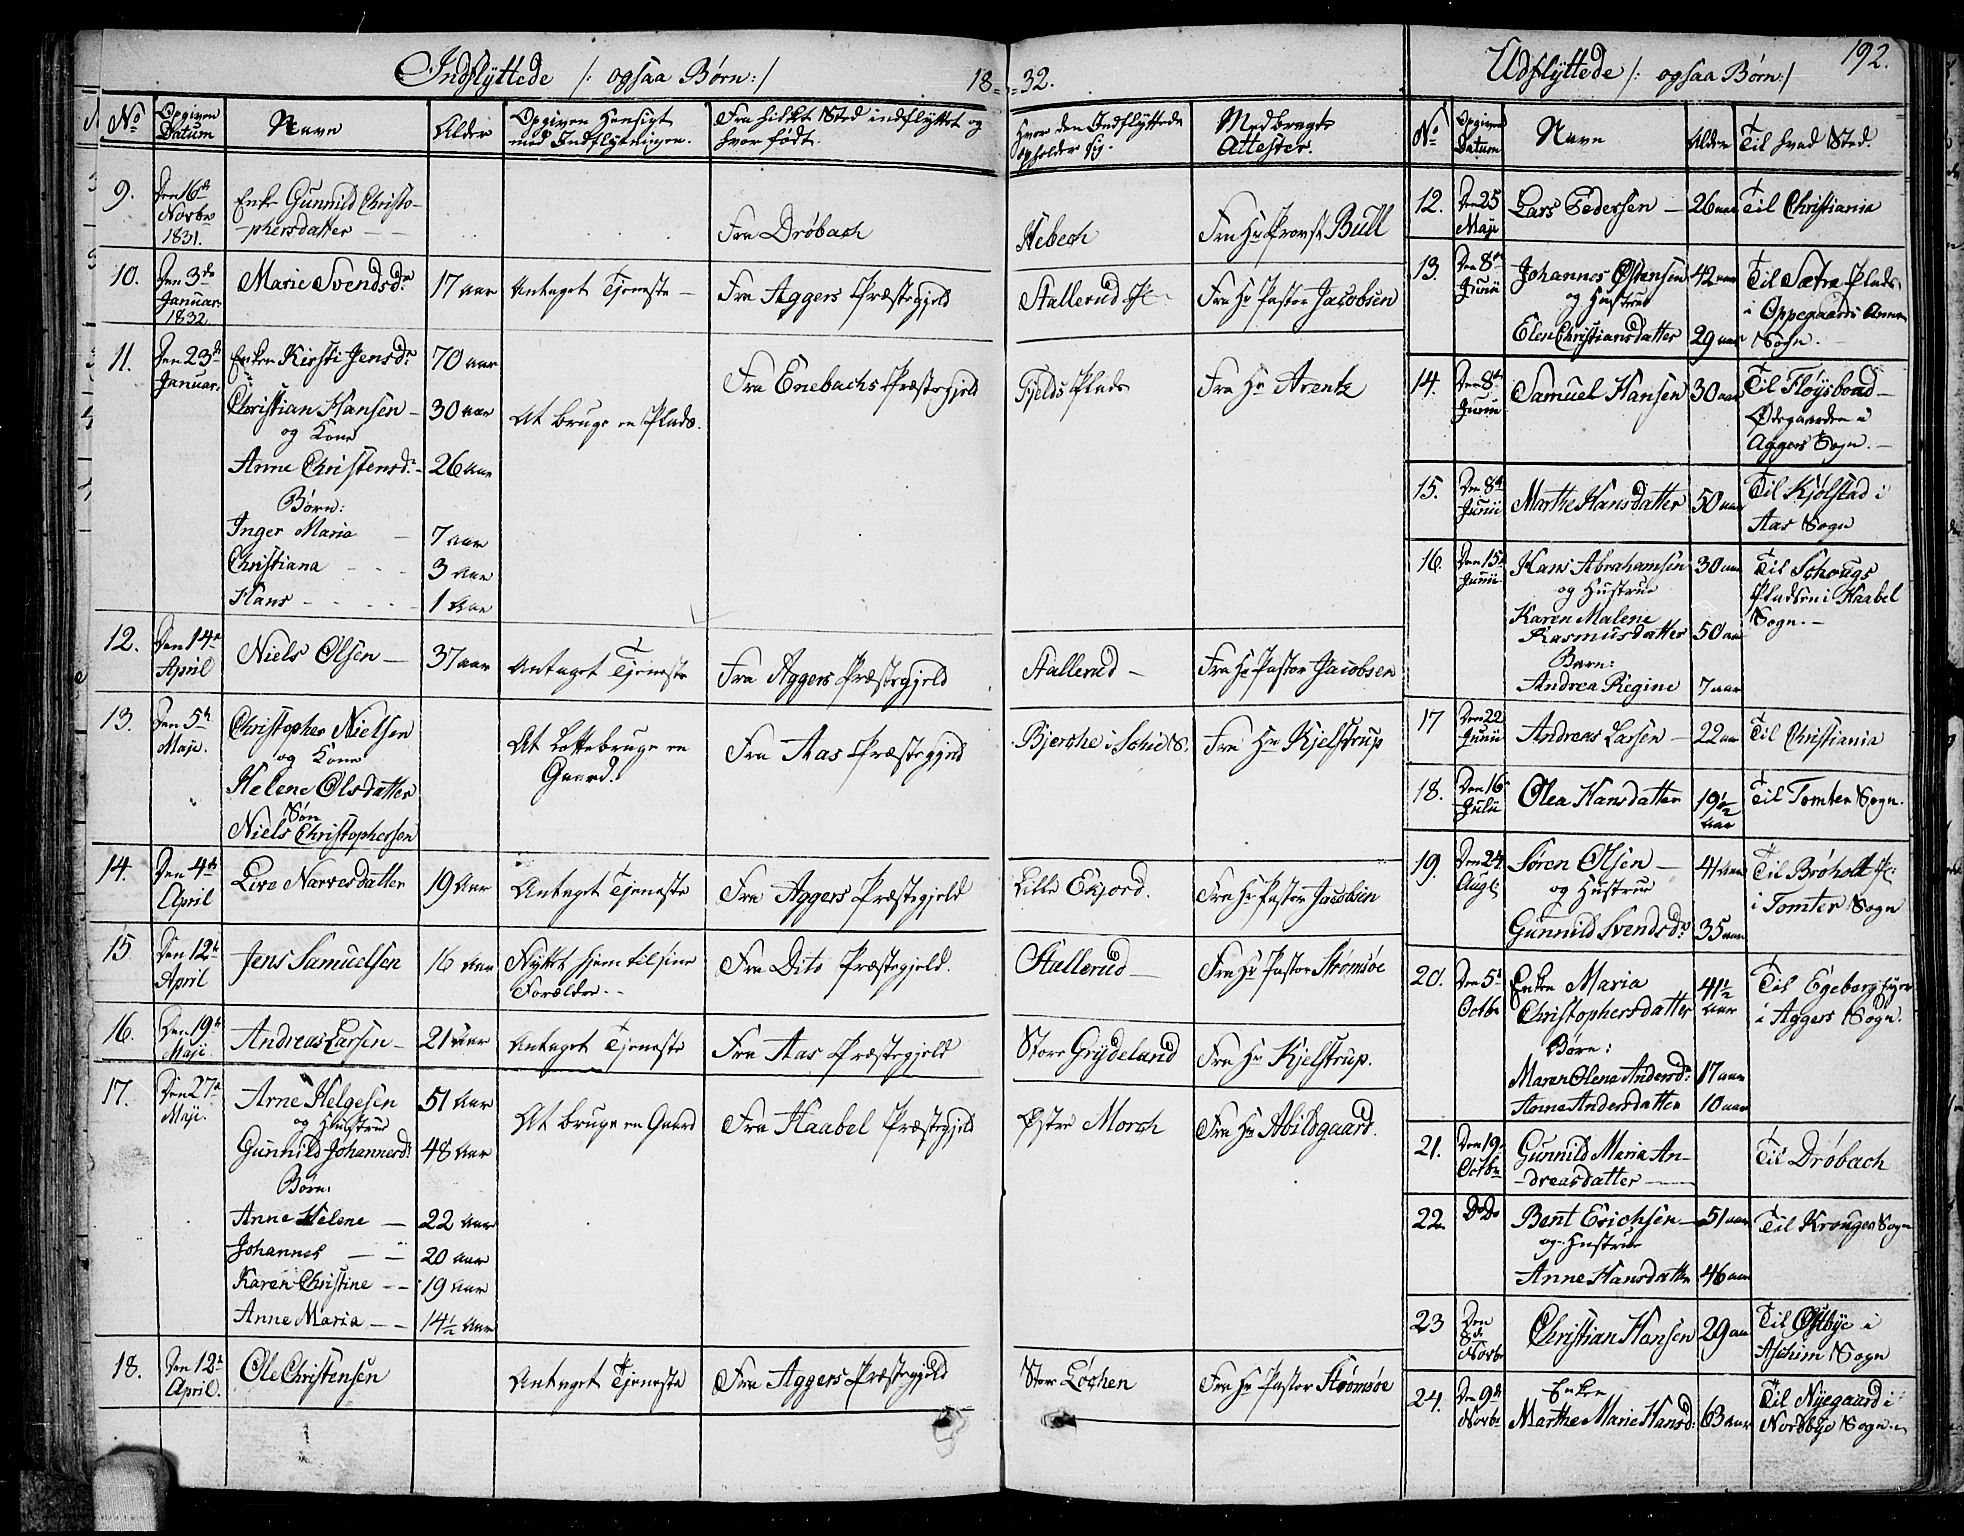 Indflyttede /: ogsaa Børn :/ 18=32.
No | Opgiven Datum | Navn | Alder | Opgiven Hensigt med Indflytningen. | Fra hvilket Sted indflyttet og hvor født. | Hvor den Indflyttede opholder sig. | Medbragte Attester.
9. | Den 16de Novbr 1831. | Enke Gunnild Christo-
phersdatter | Fra Drøbach | Hebech | Fra Hr Provst Bull
10. | Den 3de Januar 1832 | Marie Svendsdr | 17 aar | Antaget Tjeneste | Fra Aggers Præstegjeld | Stallerud | Fra Hr Pastor Jacobsen
11. | Den 23de Januar. | Enken Kirsti Jensdr | 70 aar | Fra Enebachs Præstegjeld | Fjelds Plads | Fra Hr Arentz
Christian Hansen | 30 aar | At bruge en Plads.
og Kone
Anne Christensdr | 26 aar
Børn:
Inger Maria | 7 aar
Christiana | 3 aar
Hans | 1 aar
12. | Den 14de April | Niels Olsen | 37 aar | Antaget Tjeneste | Fra Aggers Præstegjeld | Stallerud | Fra Hr Pastor Jacobsen
13. | Den 5te Maji. | Christopher Nielsen | At bruge en Gaard. | Fra Aas Præstegjeld | Bjerche i Schie S. | Fra Hr Kjelstrup
og Kone
Helene Olsdatter
Søn
Niels Christophersen
14. | Den 4de April | Live Narvesdatter | 19 aar | Antaget Tjeneste | Fra Aggers Præstegjeld | Lille Ekjord. | Fra Hr Pastor Jacobsen
15 | Den 12te April | Jens Samuelsen | 16 aar | Flyttet hjem til sine Forældre | Fra Dito Præstegjeld. | Stallerud | Fra Hr Pastor Strømsøe
16. | Den 19de Maji. | Andreas Larsen | 21 aar | Antaget Tjeneste | Fra Aas Præstegjeld | Store Grydeland | Fra Hr Kjelstrup.
17. | Den 27de Maji. | Arne Helgesen | 51 aar | At bruge en Gaard | Fra Haabel Præstegjeld | Østre Morch | Fra Hr Abildgaard.
og Hustrue
Gunnild Johannesdr | 48 aar
Børn:
Anne Helene | 22 aar
Johannes | 20 aar
Karen Christine | 19 aar
Anne Maria | 14½ aar
18. | Den 12te April. | Ole Christensen | Antaget Tjeneste | Fra Aggers Præstegjeld | Store Løchen | Fra Hr Pastor Strømsøe
Udflyttede /: ogsaa Børn :/ 192.
No | Opgiven Datum | Navn | Alder | Til hvad Sted.
12. | Den 25 Maji | Lars Pedersen | 26 aar | Til Christiania
13. | Den 8de Junii | Johannes Østensen | 42 aar | Til Sætre Plads
og Hustrue | i Oppegaards Annex
Elen Christiansdatter | 29 aar | Sogn.
14. | Den 8de Junii | Samuel Hansen | 30 aar | Til Fløysboad
Ødegaarden i
Aggers Sogn.
15. | Den 8de Junii | Marthe Hansdatter | 50 aar | Til Kjølstad i
Aas Sogn
16. | Den 15de Junii | Hans Abrahamsen | 30 aar | Til Schougs
og Hustrue | Pladsen i Haabel
Karen Malene | Sogn.
Rasmusdatter | 50 aar
Barn:
Andrea Regine | 7 aar
17 | Den 22 Junii | Andreas Larsen | 22 aar | Til Christiania
18. | Den 16 Julii | Olea Hansdatter | 19½ aar | Til Tomter Sogn.
19. | Den 24 Augt. | Søren Olsen | 41 aar | Til Brøholt
og Hustrue | i Tomter Sogn
Gunnild Svendsdr | 35 aar
20. | Den 5te Octbr | Enken Maria | 41½ aar | Til Egeberg
Christophersdatter | i Aggers Sogn.
Børn:
Maren Olene Andersdr | 17 aar
Anne Andersdatter | 10 aar
21. | Den 19de Octbr | Gunnild Maria An-
dreasdatter | Til Drøbach
22 | Do Do | Bent Erichsen | 51 aar | Til Krouger Sogn
og Hustrue
Anne Hansdatter | 46 aar
23 | Den 8de Novbr | Christian Hansen | 29 aar | Til Østbye i
Aschim Sogn
24. | Den 9de Novbr | Enken
Marthe Marie Hansdr | 63 aar | Til Nyegaard i
Nordbye Sogn.